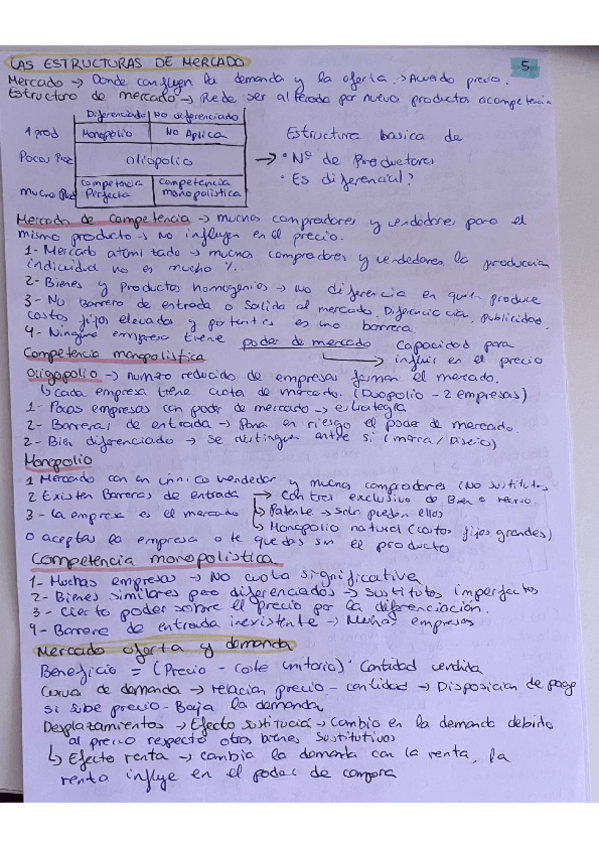 LAS ESTRUCTURAS DE MERCADO 5
Mercado → Donde confluyen la demanda y la oferta. → Acuerdo precio.
Estructura de mercado → Puede ser alterado por nuevo productos o competencia
Diferenciado No deferenciado
1 prod Monopolio No Aplica
Pocos Prod oliopolio
Mucho Prod competencia Perfecta competencia monopolistica
Estructura basica de
→ • Nº de Productores
• Es diferencial?
Mercado de competencia → muchos compradores y vendedores para el
mismo producto → no influyen en el precio.
1- Mercado atomitado → muchos compradores y vendedores la producción
individual no es mucho %.
2- Bienes y Productos homogenios → no diferencia en quien produce
3- No barrera de entrada o salida al mercado. Diferenciación, publicidad.
costos fijos elevados y patentes es una barrera.
4- Ninguna empresa tiene poder de mercado capacidad para
influir en el precio
Competencia monopolistica
Oligopolio → numero reducido de empresas forman el mercado.
↳ cada empresa tiene cuota de mercado. (Duopolio - 2 empresas)
1- Pocas empresas con poder de mercado → estrategia
2- Barreras de entrada → Ponen en riesgo el poder de mercado.
2- Bien diferenciado → se distinguen entre si (marca / Diseño)
Monopolio
1 Mercado con un único vendedor y muchos compradores (No sustitutos
2 Existen Barreras de entrada → Control exclusivo de Bien o
3- la empresa es el mercado ↳ Patente → solo pueden ellos
↳ Monopolio natural (costos fijos grandes)
o aceptas la empresa o te quedas sin el producto
Competencia monopolistica
1- Muchas empresas → No cuota significative
2- Bienes similares pero diferenciados → sustitutos imperfectos
3- Cierto poder sobre el precio por la diferenciación.
4- Barrera de entrada inexistente → Muchas empresas
Mercado oferta y demanda
Beneficio = (Precio - coste unitario) · Cantidad vendida
Curva de demanda → relacion precio - cantidad → Disposicion de pago
si sube precio - Baja la demanda
Desplazamientos → Efecto sustitucion → cambio en la demanda debido
al precio respecto otros bienes sustitutivos
↳ Efecto renta → cambia la demanda con la renta, la
renta influye en el poder de compra